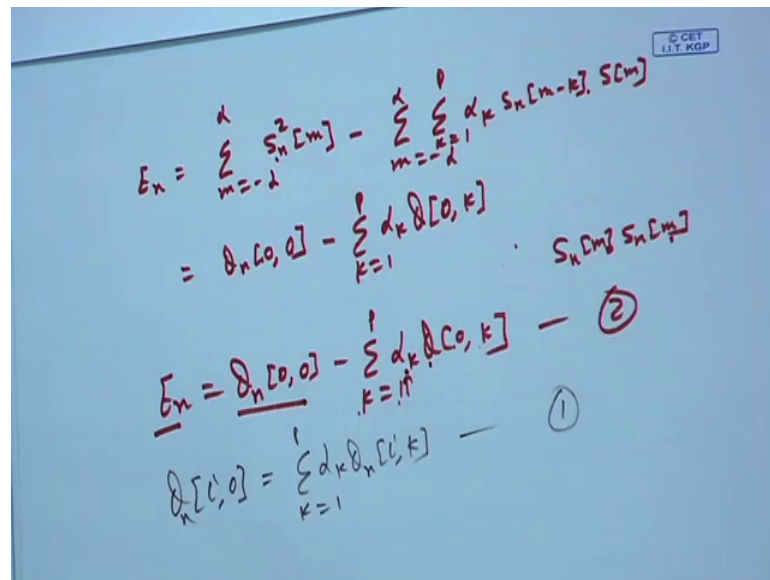 © CET
I.I.T. KGP
Eₙ = ∑_{m=-α}^{α} Sₙ²[m] - ∑_{m=-α}^{α} ∑_{k=1}^{p} αₖ Sₙ[m-k]. S[m]
= Qₙ[0,0] - ∑_{k=1}^{p} αₖ Q[0,k]
Sₙ[m] Sₙ[m]
Eₙ = Qₙ[0,0] - ∑_{k=1}^{p} αₖ Qₙ[0,k] — ②
Qₙ[i,0] = ∑_{k=1}^{p} αₖ Qₙ[i,k] — ①